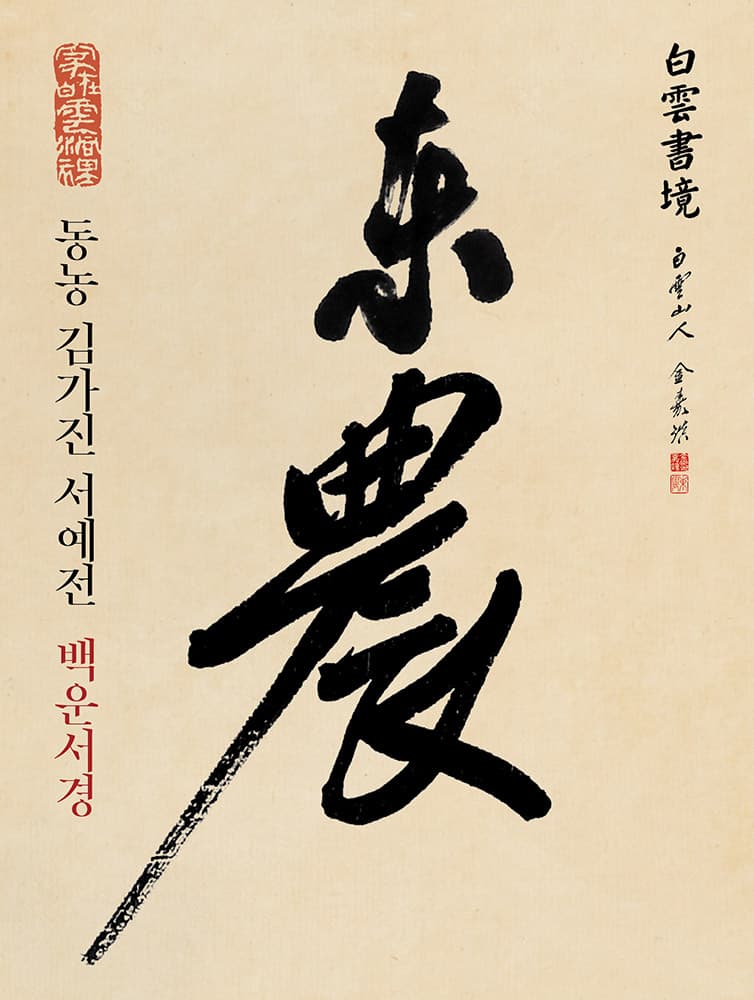 白雲書境
白雲山人 金嘉鎮
東農
동농 김가진 서예전 백운서경